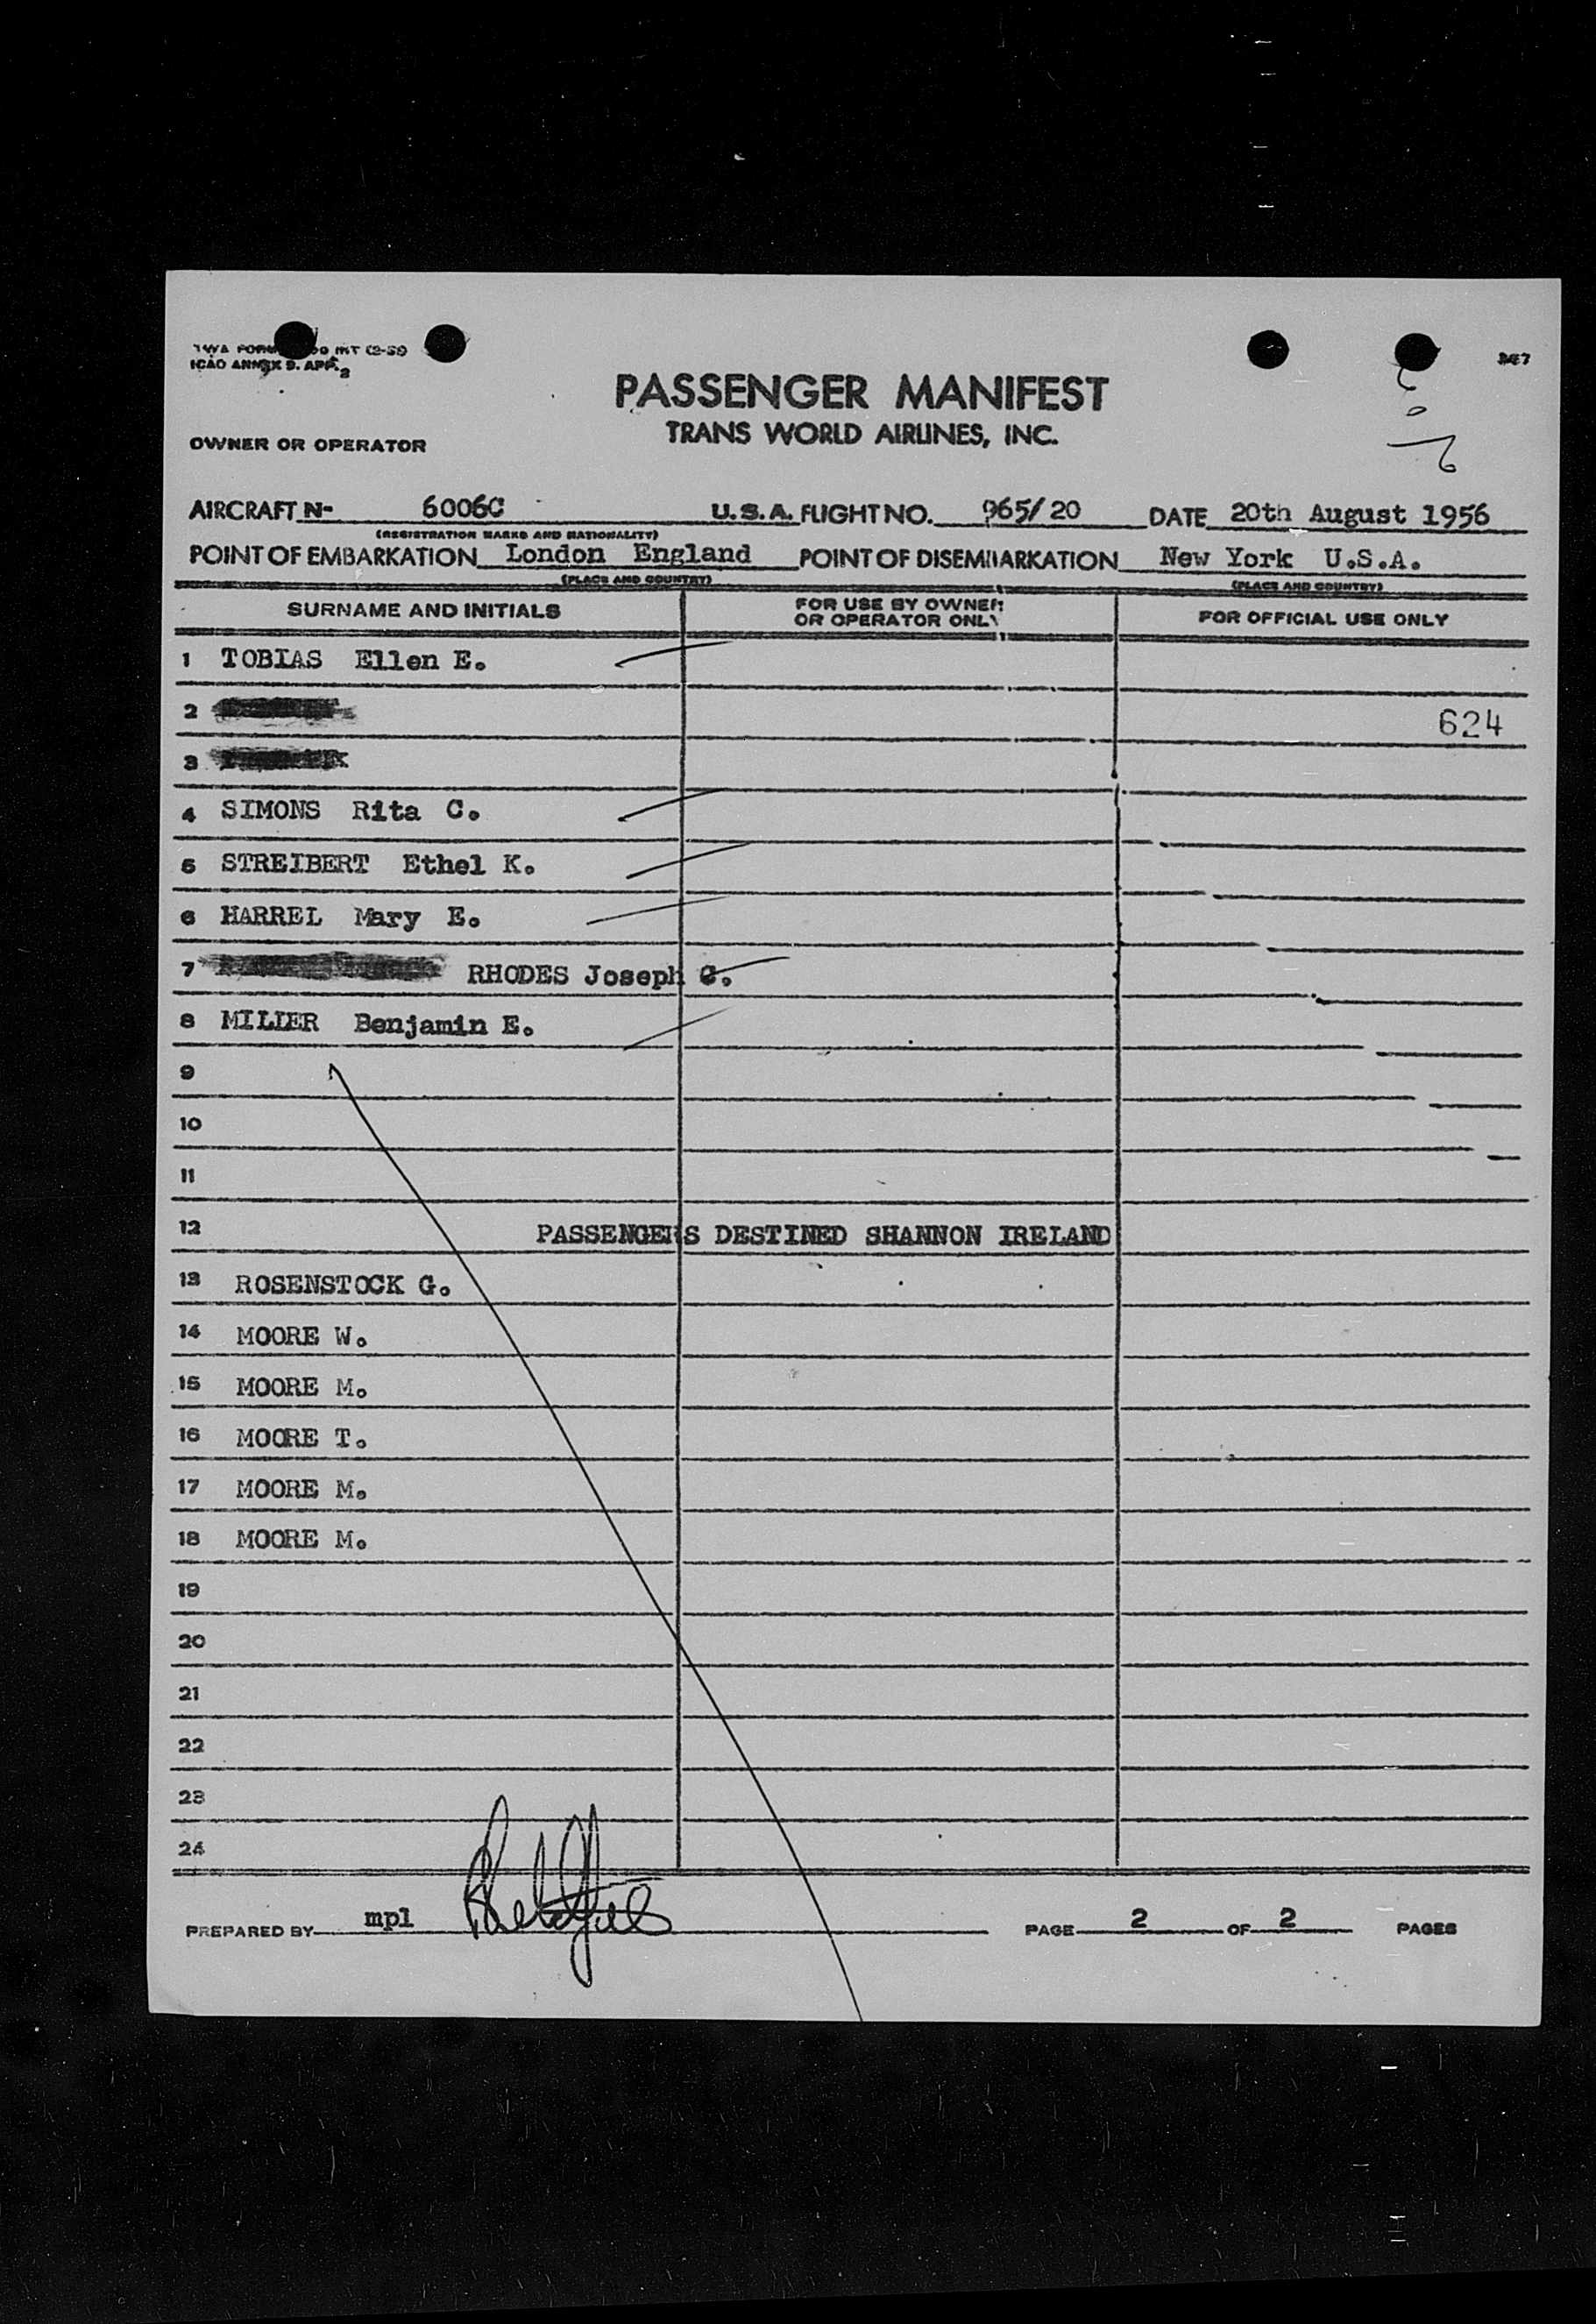 TWA FORM INT (2-51)
ICAO ANNEX 9. APP. 2
347
PASSENGER MANIFEST
TRANS WORLD AIRLINES, INC.
OWNER OR OPERATOR
AIRCRAFT N- 6006C U.S.A. FLIGHT NO. 965/20 DATE 20th August 1956
(REGISTRATION MARKS AND NATIONALITY)
POINT OF EMBARKATION London England POINT OF DISEMBARKATION New York U.S.A.
(PLACE AND COUNTRY) (PLACE AND COUNTRY)
SURNAME AND INITIALS FOR USE BY OWNER OR OPERATOR ONLY FOR OFFICIAL USE ONLY
1 TOBIAS Ellen E.
2 624
3
4 SIMONS Rita C.
5 STREIBERT Ethel K.
6 HARREL Mary E.
7 RHODES Joseph C.
8 MILLER Benjamin E.
9
10
11
12 PASSENGERS DESTINED SHANNON IRELAND
13 ROSENSTOCK G.
14 MOORE W.
15 MOORE M.
16 MOORE T.
17 MOORE M.
18 MOORE M.
19
20
21
22
23
24
PREPARED BY mpl PAGE 2 OF 2 PAGES